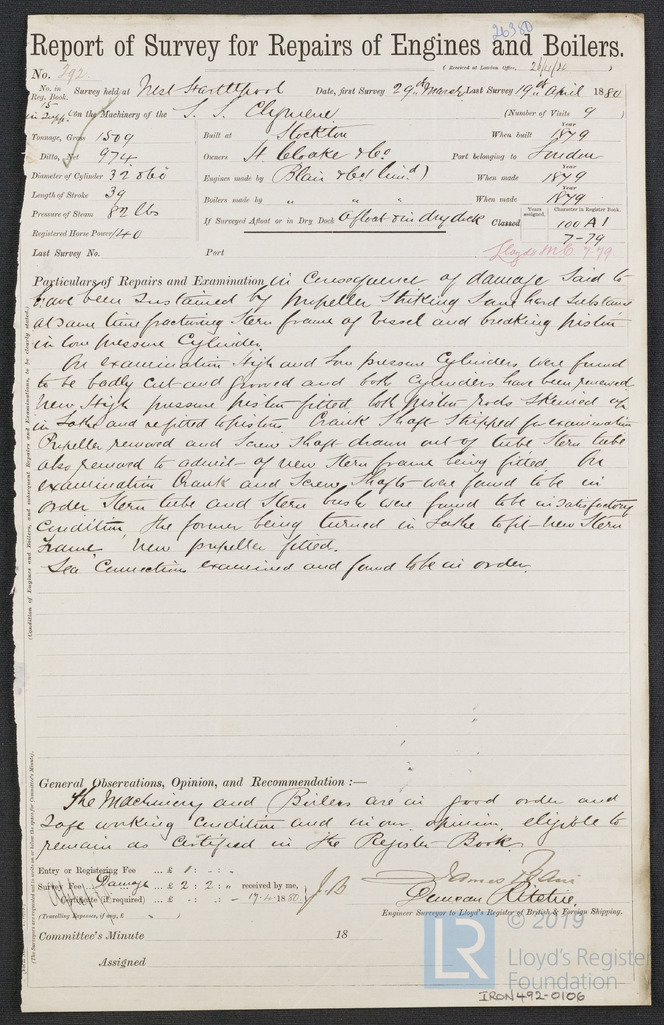 26380
Report of Survey for Repairs of Engines and Boilers.
(Received at London Office, 26/4/80)
No. 292.
No. in Reg. Book. Survey held at West Hartlepool Date, first Survey 29th March Last Survey 19th April 1880
15 in Supp. on the Machinery of the S. S. Clymene (Number of Visits 9)
Tonnage, Gross 1509 Built at Stockton When built Year 1879
Ditto, Net 974 Owners H Cloake & Co Port belonging to London
Diameter of Cylinder 32 & 60 Engines made by Blair & Co (Limd) When made Year 1879
Length of Stroke 39 Boilers made by " " " When made Year 1879
Pressure of Steam 82 lbs If Surveyed Afloat or in Dry Dock Afloat & in dry dock Classed Years assigned. Character in Register Book. 100 A1
Registered Horse Power 140 7-79
Last Survey No. Port Lloyds M.C. 7.79
Particulars of Repairs and Examination In Consequence of damage Said to
have been Sustained by propeller Striking Some hard Substance
at same time fracturing Stern frame of Vessel and breaking piston
in low pressure Cylinder.
On examination High and Low pressure Cylinders were found
to be badly Cut and grooved and both Cylinders have been renewed
New High pressure piston fitted, both piston rods Skimmed up
in Lathe and refitted to pistons. Crank Shaft Stripped for examination
Propeller removed and Screw Shaft drawn out of tube Stern tube
also removed to admit of new Stern frame being fitted. On
examination Crank and Screw Shafts were found to be in
order Stern tube and Stern bush were found to be in Satisfactory
Condition, the former being turned in Lathe to fit new Stern
Frame. New propeller fitted.
Sea Connections examined and found to be in order.
(Condition of Engines and Boilers, and subsequent Repairs and Examinations, to be clearly stated.)
General Observations, Opinion, and Recommendation:—
The Machinery and Boilers are in good order and
Safe working Condition and in our opinion eligible to
remain as Certified in the Register Book.
Entry or Registering Fee ... £ 1 : - : -
Survey Fee Damage ... £ 2 : 2 : " received by me, J.B
Certificate (if required) ... £ - : - : - 17.4.1880
(Travelling Expenses, if any, £ )
James Blair
Duncan Ritchie,
Engineer Surveyor to Lloyd's Register of British & Foreign Shipping.
Committee's Minute 18
Assigned
© 2019
LR Lloyd's Register
Foundation
IRON492-0106